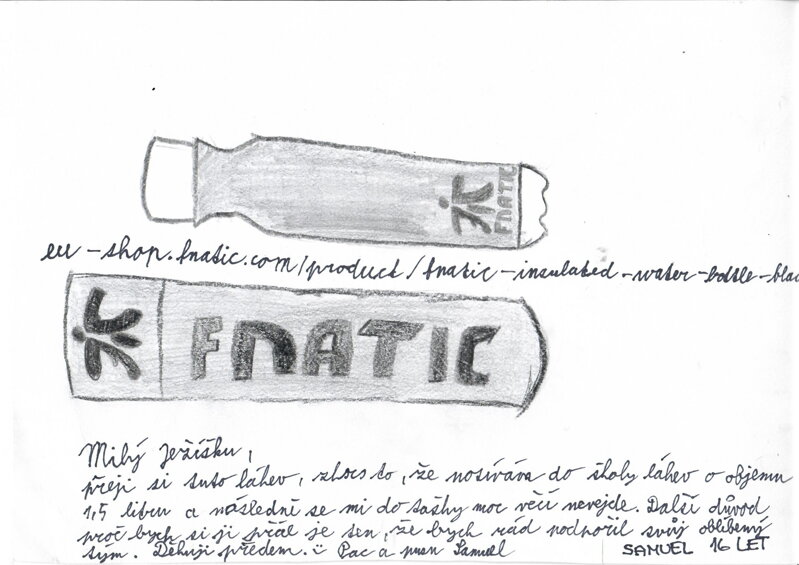 FNATIC
eu-shop.fnatic.com/product/fnatic-insulated-water-bottle-blac
FNATIC
Milý Ježíšku,
přeji si tuto láhev, to, že do školy láhev o objemu
1,5 litru a následně se mi do tašky moc věcí nevejde. Další důvod
proč bych si ji přál je ten, že bych rád podpořil svůj oblíbený
tým. Děkuji předem. :) Pac a pusu Samuel
SAMUEL 16 LET